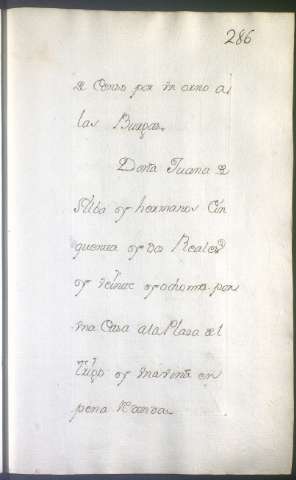 286
de Censo por vn año a
las Burgas.
Doña Juana de
Alba y hermanos Cin
quenta y dos Reales
y veinte y ocho mrs por
vna Casa a la Plaza del
trigo y vna viña en
pena